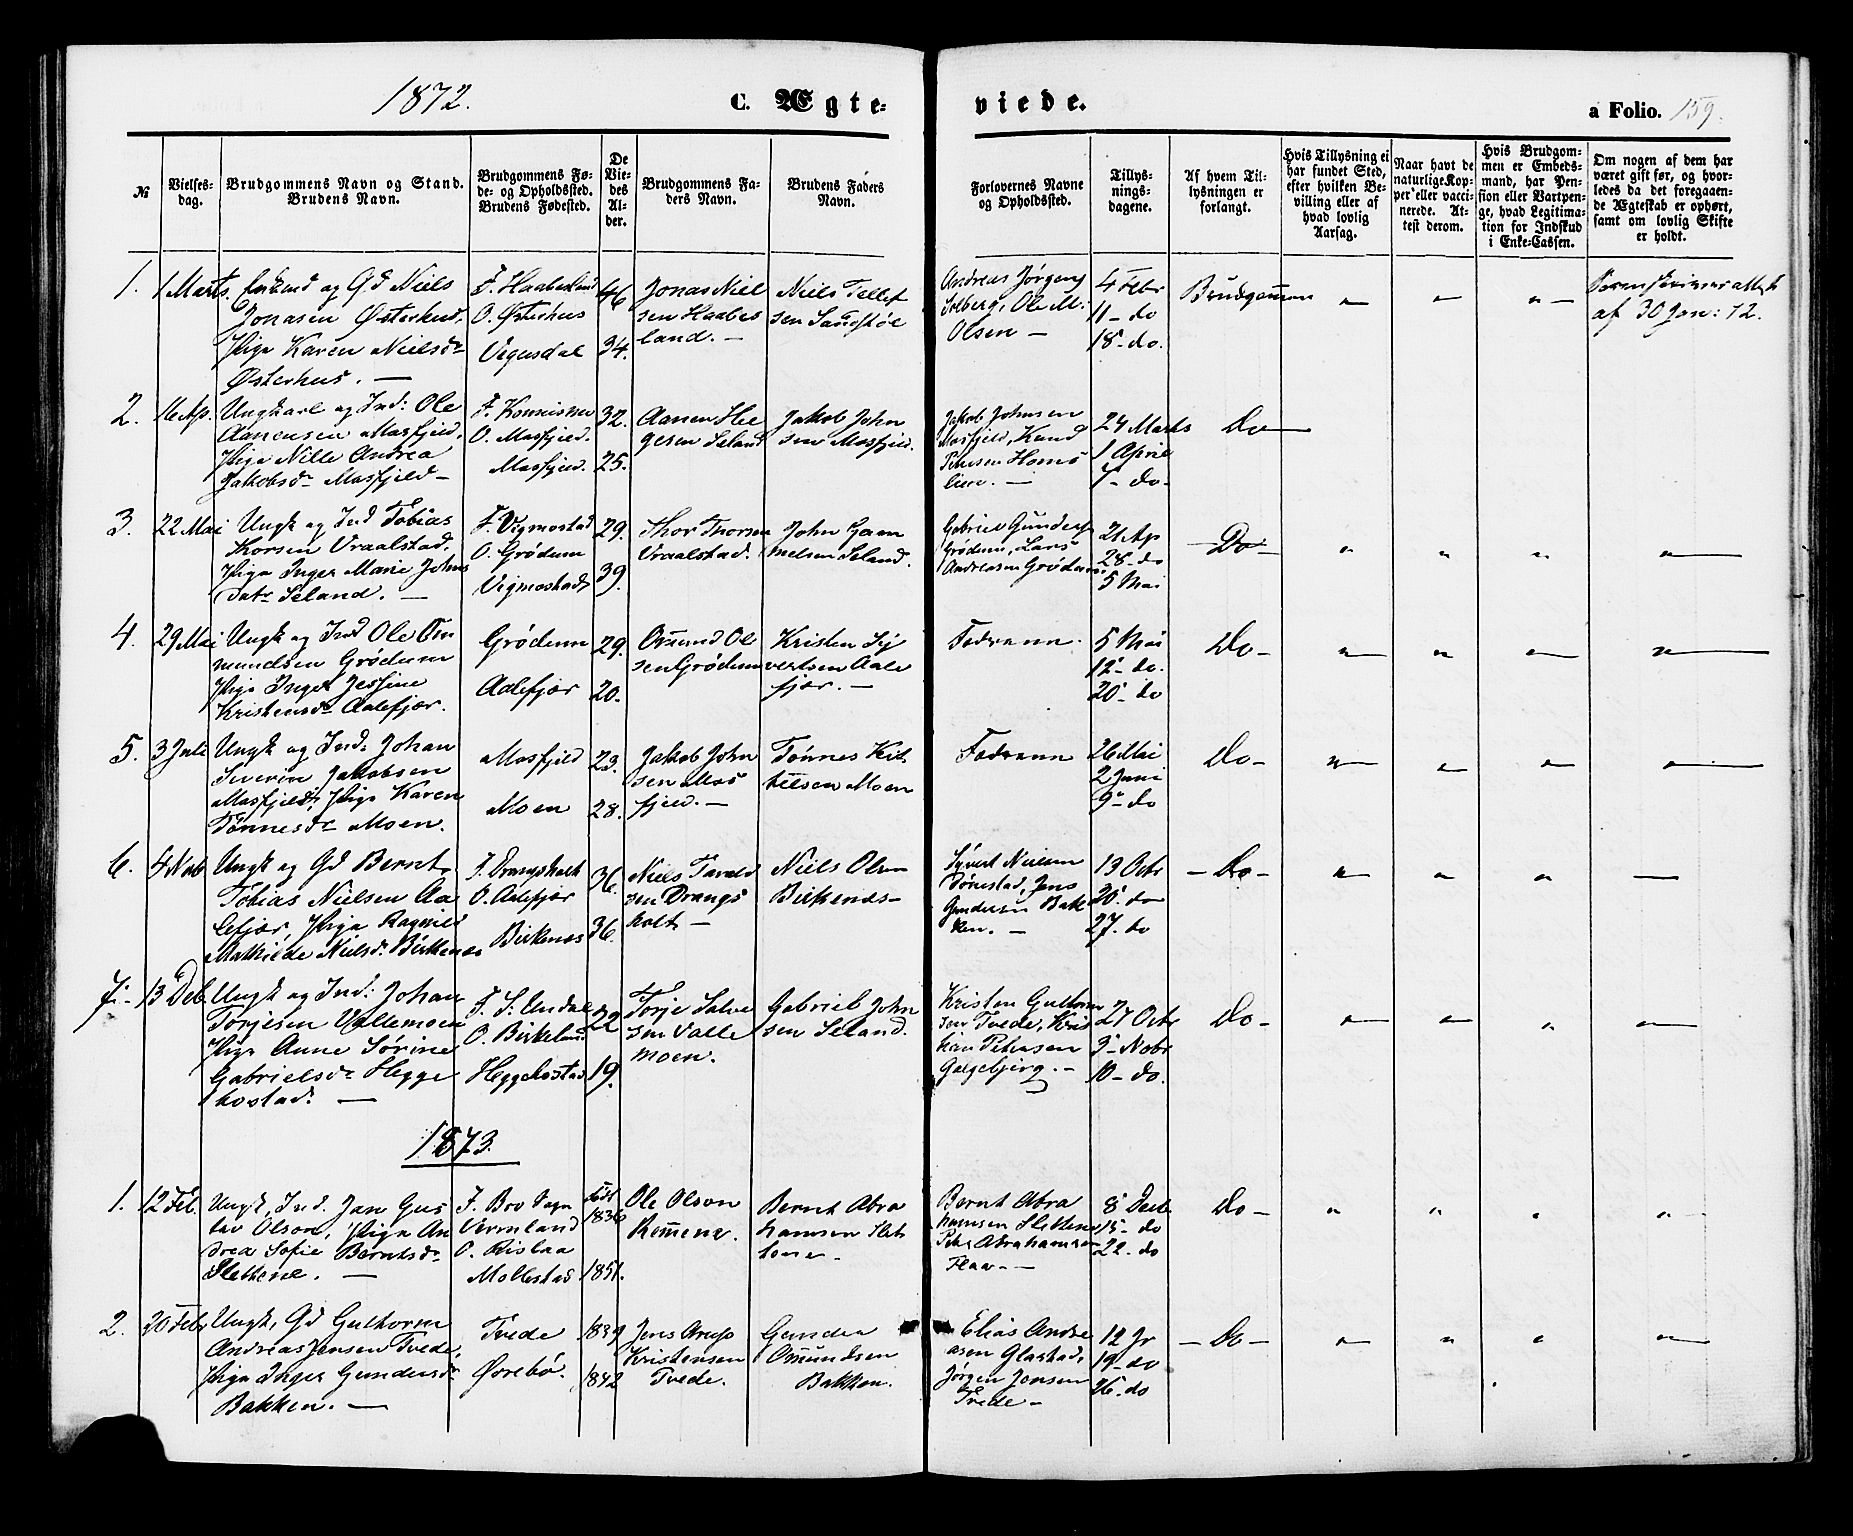 1872.
C. Ægte-
viede.
a Folio. 159.
№
Vielses-
dag.
Brudgommens Navn og Stand.
Brudens Navn.
Brudgommens Fø-
de- og Opholdssted.
Brudens Fødested.
De
Vie-
des
Al-
der.
Brudgommens Fa-
ders Navn.
Brudens Faders
Navn.
Forlovernes Navne
og Opholdssted.
Tillys-
nings-
dagene.
Af hvem Til-
lysningen er
forlangt.
Hvis Tillysning ei
har fundet Sted,
efter hvilken Be-
villing eller af
hvad lovlig
Aarsag.
Naar havt de
naturlige Kop-
per eller vacci-
nerede. At-
test derom.
Hvis Brudgom-
men er Embeds-
mand, har Pen-
sion eller Vartpen-
ge, hvad Legitima-
tion for Indskud
i Enke-Cassen.
Om nogen af dem har
været gift før, og hvor-
ledes da det foregaaen-
de Ægteskab er ophørt,
samt om lovlig Skifte
er holdt.
1.
1 Marts.
og Gd Niels
Jonasen Østerhus,
Pige Karen Nielsdr
Østerhus. —
F. Haabesland
O. Østerhus
Vegusdal
46
34.
Jonas Niel
sen Haabes
land. —
Niels Tellef
sen Sandtøl
Andreas Jørgens
Solberg, Ole M:
Olsen —
4 Febr
11 - do
18 - do.
Brudgommen
"
"
"
Sorenskriver Attest
af 30 Jan: 72.
2.
16 Ap.
Ungkarl og Ind: Ole
Aanensen Mosfjeld,
Pige Nille Andrea
Jakobsdr Mosfjeld —
F.
O. Mosfjeld.
Mosfjeld.
32.
25.
Aanen Hel
gesen Seland
Jakob John
sen Mosfjeld.
Jakob Johnsen
Mosfjeld, Knud
Petersen Homs
lien. —
24 Marts
1 April
7 - do -
Do
3.
22 Mai
Ungk og Ind Tobias
Thorsen Vraalstad,
Pige Inger Marie Johns
datr Seland. —
F. Vigmostad
O. Grødum
Vigmostad
29.
39.
Thor Thorsen
Vraalstad.
John Gam
melsen Seland.
Gabriel Gunders
Grødum, Lars
Andreasen Grødum
21 Ap
28 - do
5 Mai
— Do —
"
"
"
"
4.
29 Mai
Ungk og Ind Ole Om
mundsen Grødum
Pige Inger Jessine
Kristensdr Aalefjær.
Grødum
Aalefjær
29.
20.
Omund Ol
sen Grødum
Kristen Sy
vertsen Aale
fjær. —
Fadrene.
5 Mai
12 - do.
20 - do
Do -
"
"
"
"
5.
3 Juli
Ungk og Ind: Johan
Severin Jakobsen
Mosfjeld, Pige Karen
Tønnesdr Moen.
Mosfjeld
Moen
23.
28.
Jakob John
sen Mos
fjeld. —
Tønnes Kit
telsen Moen
Fadrene
26 Mai
2 Juni
9 - do
Do -
"
"
"
"
6.
4 Nob
Ungk og Gd Bernt
Tobias Nielsen Aa
lefjær, Pige Ragnild
Mathilde Nielsdr. Birkenes
F. Drangsholt
O. Aalefjær
Birkenes
36.
36.
Niels Tarald
sen Drangs
holt —
Niels Olsen
Birkenes -
Syvert Nielsen
Tønestad, Jens
Gundersen Bak
ken. —
13 Octr
20 - do
27. do
— Do -
"
"
"
—
7. -
13 Deb.
Ungk og Ind: Johan
Torjesen Vallemoen
Pige Anne Sørine
Gabrielsdr Hegge
kostad. —
F. S: Undal
O. Birkeland
Heggekostad
22
19.
Torje Salve
sen Valle
moen.
Gabriel John
sen Seland.
Kristen Guttorm
sen Tvede, Kris
tian Petersen
Galgebjerg. —
27 Octr
3 - Nobr
10 - do.
Do -
"
"
"
"
1873.
1.
12 Feb.
Ungk, Ind. Jan Gus
tav Olson, Pige An
drea Sofie Berntsdr
Slettene. —
F. Bro Sogn
Vermland
O. Rislaa
Mollestad
Født
1836
1851.
Ole Olson
Remene.
Bernt Abra
hamsen Slet
tene -
Bernt Abra
hamsen Slettene
Peter Abrahamsen
Flaa - -
8 Decb.
15 - do
22 - do
Do -
"
"
"
"
2.
20 Febr
Ungk, Gd Guttorm
Andreas Jensen Tvede,
Pige Inger Gundersdr
Bakken. —
Tvede
Ørebø.
1839
1842
Jens Arup
Kristensen
Tvede.
Gunder
Omundsen
Bakken.
Elias Andre
asen Glastad,
Jørgen Jensen
Tvede -
12 Jr
19 - do
26 - do
— Do -
"
"
"
"